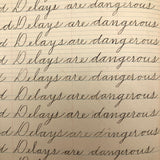 d Delays are dangerous
d Delays are dangerous
d Delays are dangerous
d Delays are dangerous
d Delays are dangerous
d Delays are dangerous
d Delays are dangerous